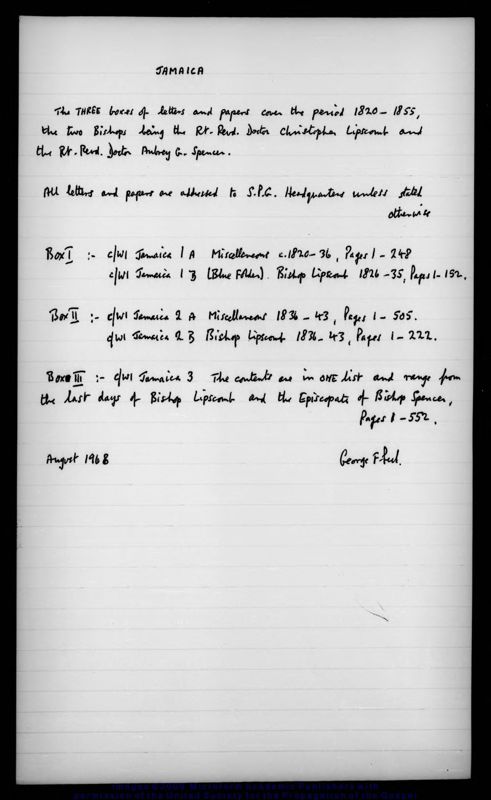 JAMAICA
The THREE boxes of letters and papers cover the period 1820 - 1855,
the two Bishops being the Rt. Revd. Doctor Christopher Lipscomb and
the Rt. Revd. Doctor Aubrey G. Spencer.
All letters and papers are addressed to S.P.G. Headquarters unless stated
otherwise
Box I :- C/WI Jamaica 1 A Miscellaneous c.1820-36, Pages 1 - 248
C/WI Jamaica 1 B (Blue Folder). Bishop Lipscomb 1826-35, Pages 1-152.
Box II :- C/WI Jamaica 2 A Miscellaneous 1836 - 43, Pages 1 - 505.
C/WI Jamaica 2 B Bishop Lipscomb 1836-43, Pages 1 - 222.
Box III :- C/WI Jamaica 3 The contents are in ONE list and range from
the last days of Bishop Lipscomb and the Episcopate of Bishop Spencer,
Pages 1 - 552.
August 1968 George F.
Images ©2009 Microform Academic Publishers with
permission of the United Society for the Propagation of the Gospel